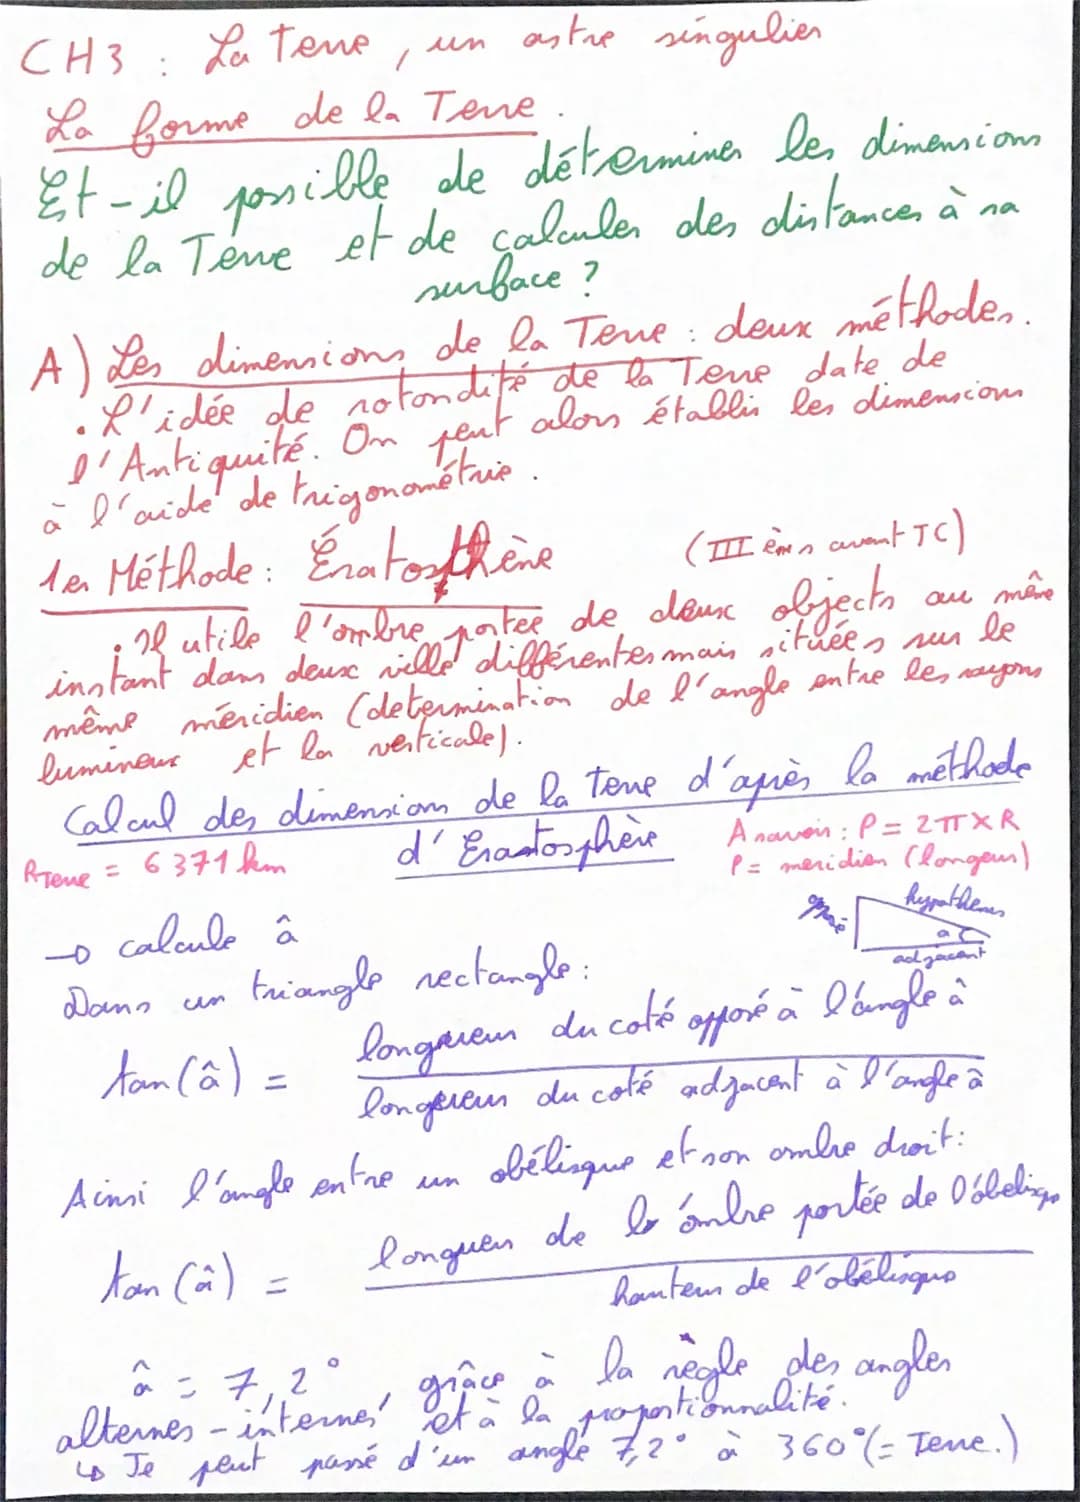 CH3 : La Terre, un astre singulier
La forme de la Terre.
Est-il possible de déterminer les dimensions
de la Terre et de calculer des distances à sa
surface ?
A) Les dimensions de la Terre : deux méthodes.
• L'idée de rotondité de la Terre date de
l'Antiquité. On peut alors établir les dimensions
à l'aide de trigonométrie.
1er Méthode : Ératosthène (III èm s avant JC)
• Il utile l'ombre portée de deux objects au même
instant dans deux ville différentes mais situées sur le
même méridien (determination de l'angle entre les rayons
lumineux et la verticale).
Calcul des dimension de la terre d'après la méthode
d'Erastosphère
A savoir : P = 2π×R
RTerre = 6371 km
P = meridien (longeur)
hypothenus
opposé
a
adjacent
→ calcule â
Dans un triangle rectangle :
tan(â) = longueur du coté opposé à l'angle â
longueur du coté adjacent à l'angle â
Ainsi l'angle entre un obélisque et son ombre droit :
tan(â) = longueur de l'ombre portée de l'obelisque
hauteur de l'obélisque
â = 7,2° grâce à la règle des angles
alternes-internes, et à la proportionnalité.
↳ Je peut passé d'un angle 7,2° à 360° (= Terre.)